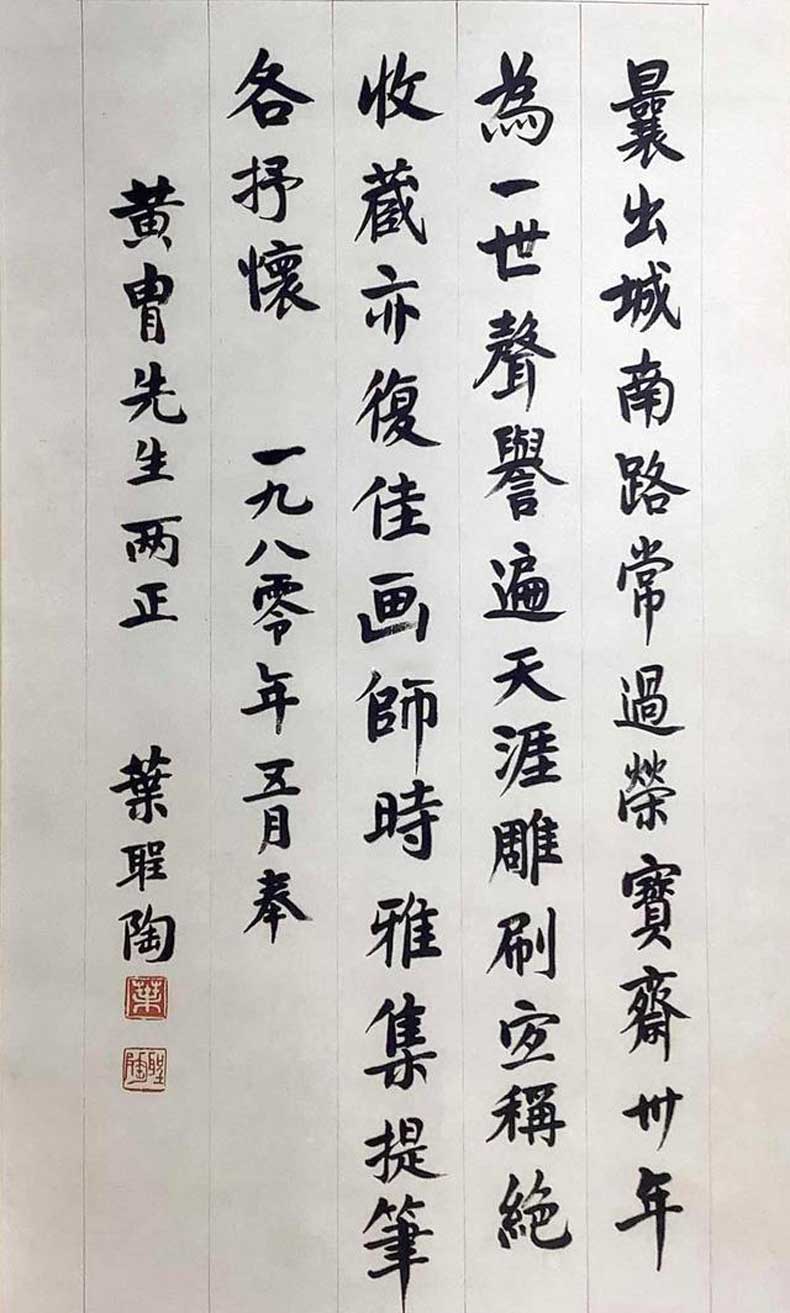 曩出城南路常過榮寶齋卅年
為一世聲譽遍天涯雕刷宜稱絕
收藏亦復佳画師時雅集提筆
各抒懷 一九八零年五月奉
黄胄先生两正 葉聖陶
葉
聖陶